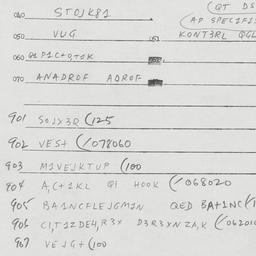 040 STOJK81 (QT DS
(AP SPECIFI
050 VUG 051 KONT3RL QGL
060 Q1P1C+QTOK
070 ANADROF ADROF
901 SOJX3Q (125
902 VES+ (/078060
903 M1VEJKTUP (100
904 A,C+1KL Q1 HOOK (/068020
905 BA1NCFLEJGM1N QED BA+1NC(1
906 C1,T1ZDE4,R3X D3R3XNZA,K (/06201
907 VEJG+(100